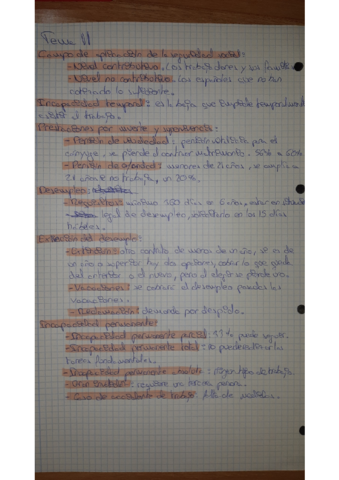 Tema 11
Campo de aplicación de la seguridad social:
- Nivel contributivo. Los trabajadores y sus familias
- Nivel no contributivo. Los españoles que no han
cotizado lo suficiente.
Incapacidad temporal: es la baja que impide temporalmente
el trabajo.
Prestaciones por muerte y supervivencia:
- Pensión de viudedad: pensión vitalicia para el
cónyuge, se pierde al contraer matrimonio. 52% o 60%
- Pensión de orfandad: menores de 21 años, se amplía a
si no trabaja, un 20%.
Desempleo:
- Requisitos: mínimo 360 días en 6 años, estar en
legal de desempleo, solicitarlo en los 15 días
hábiles.
Extinción del desempleo:
- otro contrato de menos de un año, si es de
un año o superior hay dos opciones, cobrar lo que queda
del anterior o el nuevo, pero al elegir se pierde uno.
- Vacaciones: se cobrará el desempleo pasadas las
vacaciones.
- demanda por despido.
Incapacidad permanente:
- Incapacidad permanente parcial: puede seguir.
- Incapacidad permanente total: no puede realizar las
tareas fundamentales.
- Incapacidad permanente absoluta: ningún tipo de trabajo.
- Gran invalidez: requiere una tercera persona.
- Caso de accidente de trabajo: